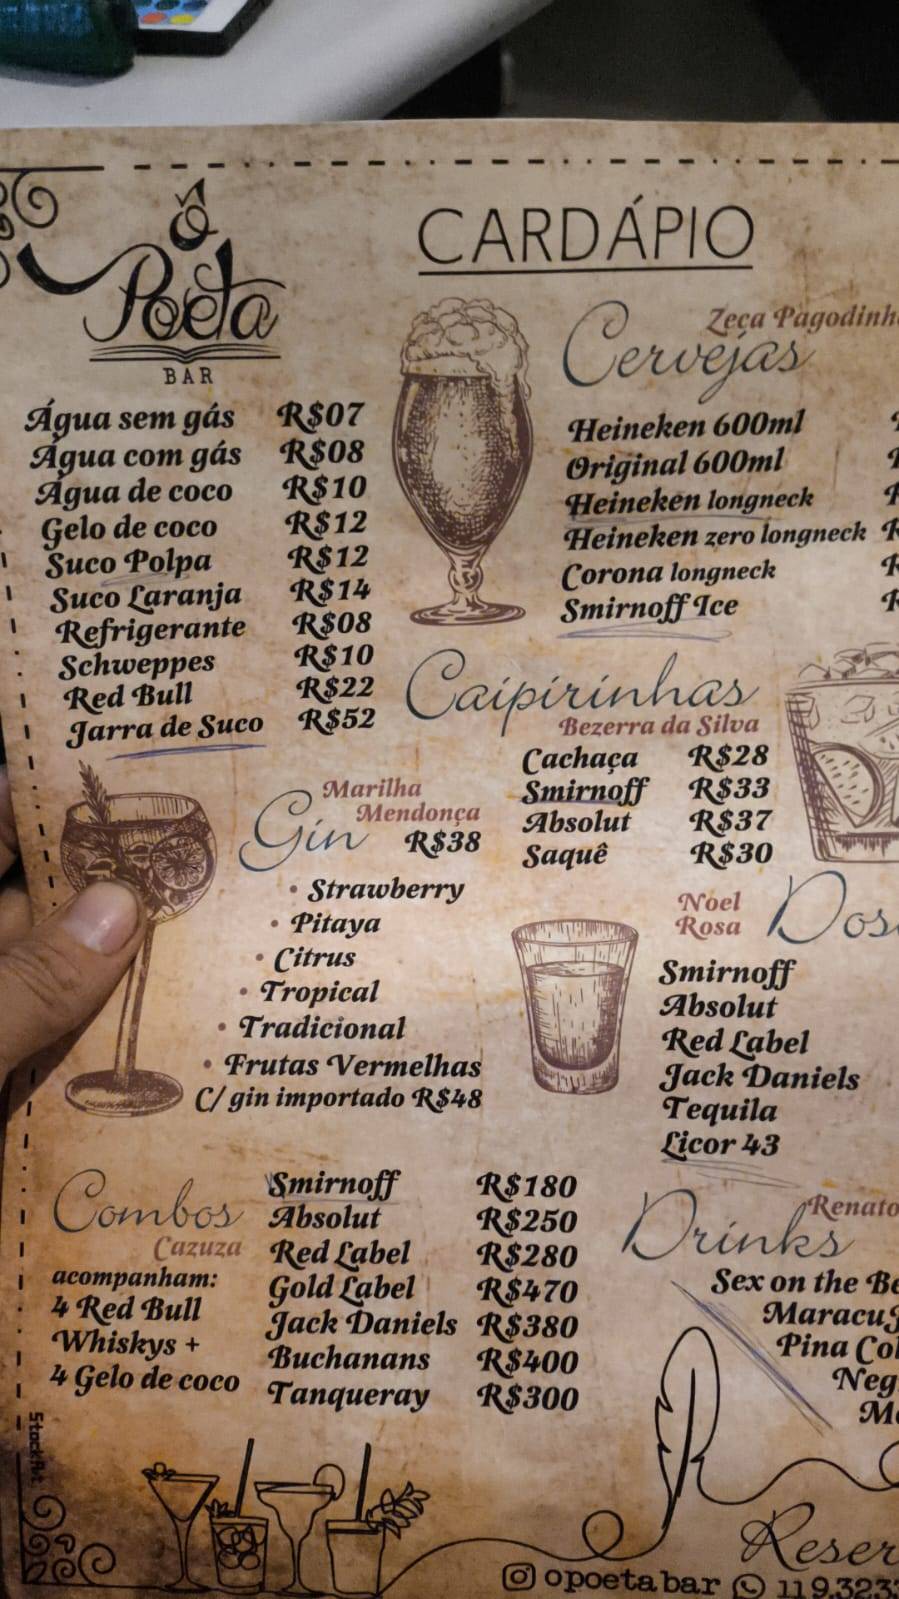 Ô
Poeta
BAR
CARDÁPIO
Água sem gás R$07
Água com gás R$08
Água de coco R$10
Gelo de coco R$12
Suco Polpa R$12
Suco Laranja R$14
Refrigerante R$08
Schweppes R$10
Red Bull R$22
Jarra de Suco R$52
Zeca Pagodinh
Cervejas
Heineken 600ml
Original 600ml
Heineken longneck
Heineken zero longneck
Corona longneck
Smirnoff Ice
Caipirinhas
Bezerra da Silva
Cachaça R$28
Smirnoff R$33
Absolut R$37
Saquê R$30
Marilha
Mendonça
Gin R$38
• Strawberry
• Pitaya
• Citrus
• Tropical
• Tradicional
• Frutas Vermelhas
C/ gin importado R$48
Noel
Rosa
Dos
Smirnoff
Absolut
Red Label
Jack Daniels
Tequila
Licor 43
Combos
Cazuza
acompanham:
4 Red Bull
Whiskys +
4 Gelo de coco
Smirnoff R$180
Absolut R$250
Red Label R$280
Gold Label R$470
Jack Daniels R$380
Buchanans R$400
Tanqueray R$300
Renato
Drinks
Sex on the Be
Maracuj
Pina Col
Neg
M
StockArt
Reser
opoetabar 11 9.3233